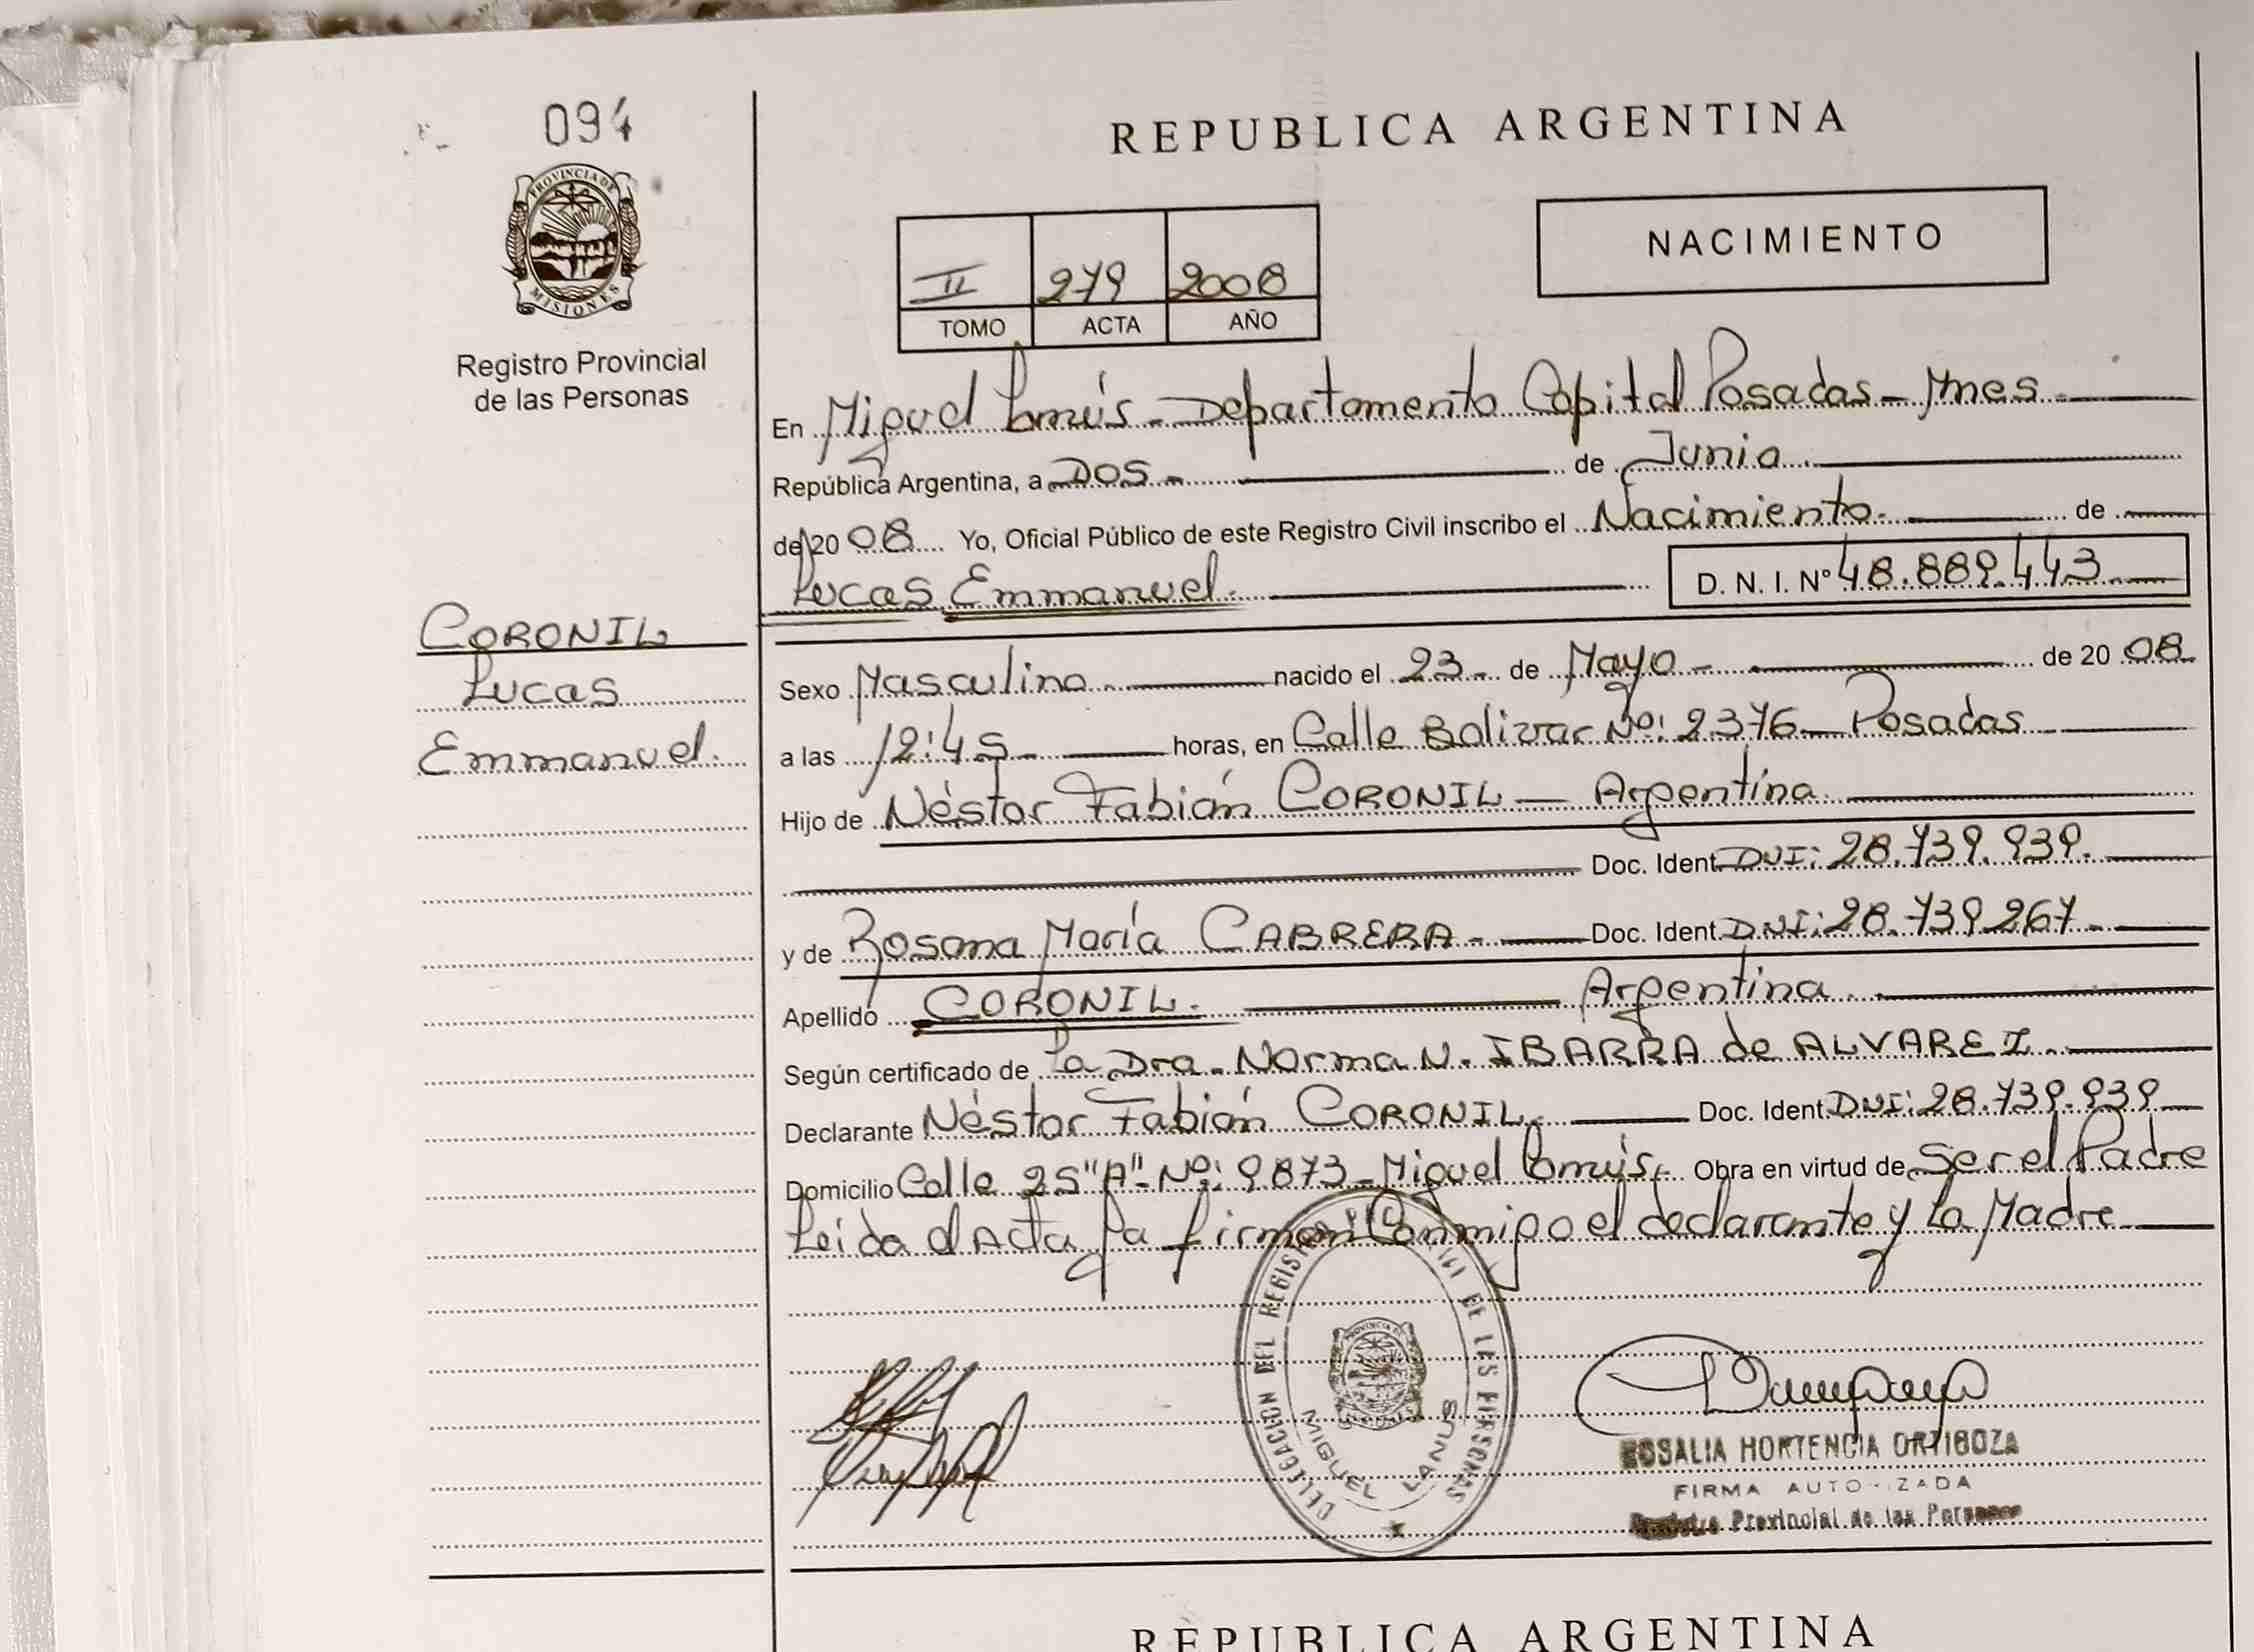 094
PROVINCIA DE
MISIONES
Registro Provincial
de las Personas
REPUBLICA ARGENTINA
NACIMIENTO
II 279 2008
TOMO ACTA AÑO
En Miguel Lanús - Departamento Capital Posadas - Mnes -
República Argentina, a Dos - de Junio
de 20 08 Yo, Oficial Público de este Registro Civil inscribo el Nacimiento - de
Lucas Emmanuel - D. N. I. Nº 48.889.443
CORONIL
Lucas
Emmanuel.
Sexo Masculino nacido el 23 - de Mayo - de 20 08
a las 12:45 - horas, en Calle Bolivar Nº: 2376 - Posadas
Hijo de Néstor Fabián CORONIL - Argentina
Doc. Ident. DNI: 28.739.939.
y de Rosana María CABRERA - Doc. Ident. DNI: 28.739.267 -
Apellido CORONIL. Argentina
Según certificado de La Dra. Norma N. IBARRA de ALVAREZ
Declarante Néstor Fabián CORONIL Doc. Ident. DNI: 28.739.939
Domicilio Calle 25 "A" - Nº: 9873 - Miguel Lanús Obra en virtud de Ser el Padre
Leida el Acta la firman Conmigo el declarante y La Madre
DELEGACION DEL REGISTRO PROVINCIAL DE LAS PERSONAS
MIGUEL LANUS
ROSALIA HORTENCIA ORTIGOZA
FIRMA AUTORIZADA
Registro Provincial de las Personas
REPUBLICA ARGENTINA